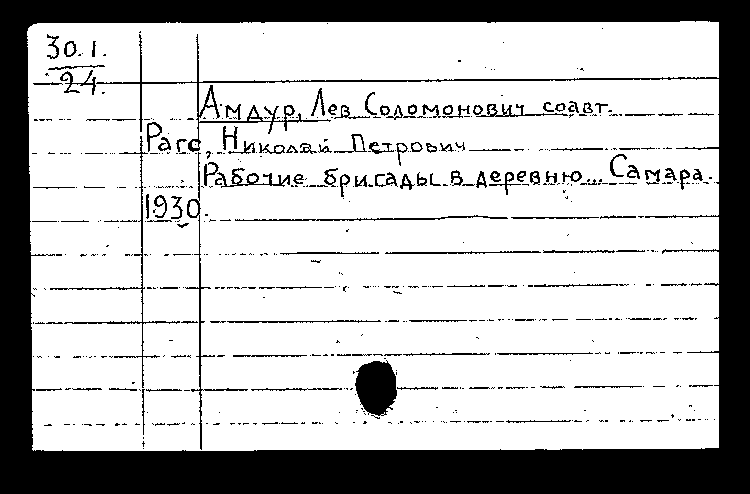 30.1.
24.
Амдур, Лев Соломонович соавт.
Расс, Николай Петрович
Рабочие бригады в деревню... Самара.
1930.